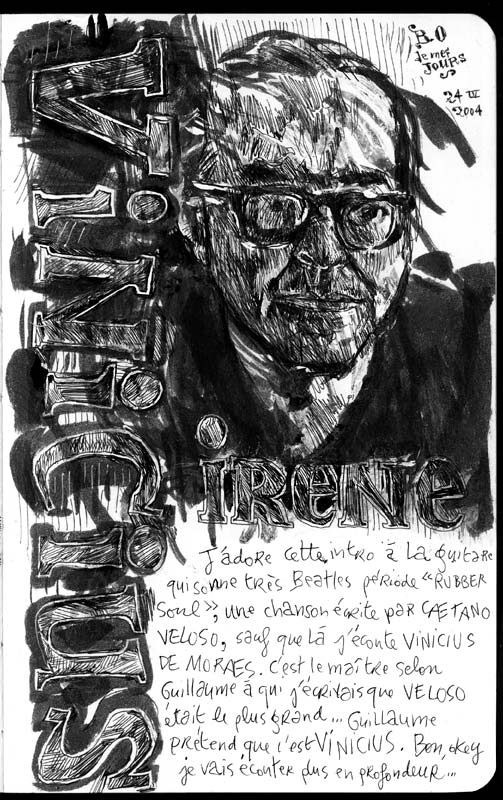 ViNiCiuS
B.O
de mes
JOURS
24 III
2004
iRENE
J'adore cette intro à La guitare
qui sonne très Beatles période "RUBBER
Soul", une chanson écrite par CAETANO
VELOSO, sauf que Là j'écoute VINICIUS
DE MORAES. C'est le maître selon
Guillaume à qui j'écrivais que VELOSO
était le plus grand... Guillaume
prétend que c'est VINICIUS. Bon, okey
je vais écouter plus en profondeur...